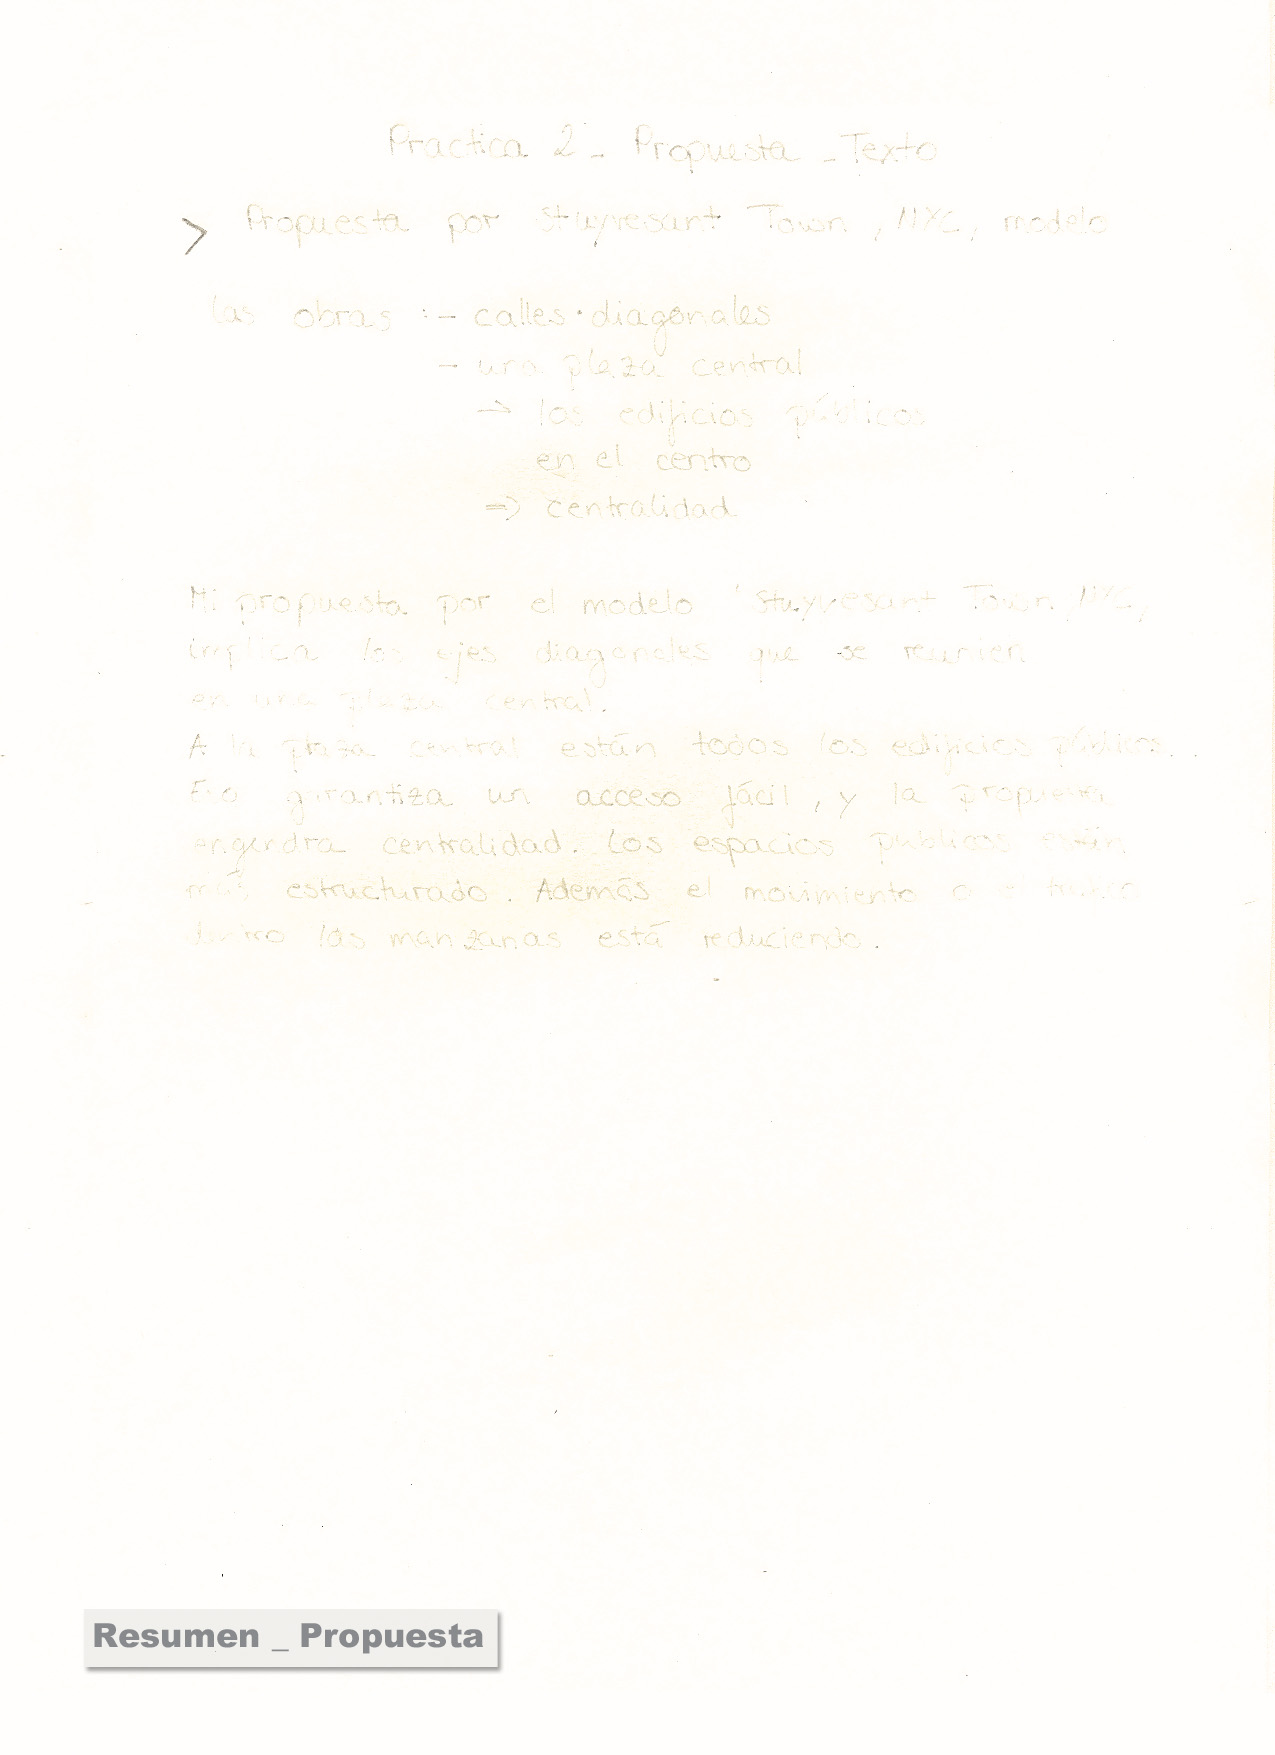 Practica 2 - Propuesta - Texto
> Propuesta por Stuyvesant Town, NYC, modelo
las obras : - calles diagonales
- una plaza central
→ los edificios públicos
en el centro
=> centralidad
Mi propuesta por el modelo Stuyvesant Town, NYC,
implica los ejes diagonales que se reunien
en una plaza central.
A la plaza central están todos los edificios públicos.
Eso garantiza un acceso fácil, y la propuesta
engendra centralidad. Los espacios publicos están
más estructurado. Además el movimiento o el trafico
dentro las manzanas está reduciendo.
Resumen _ Propuesta